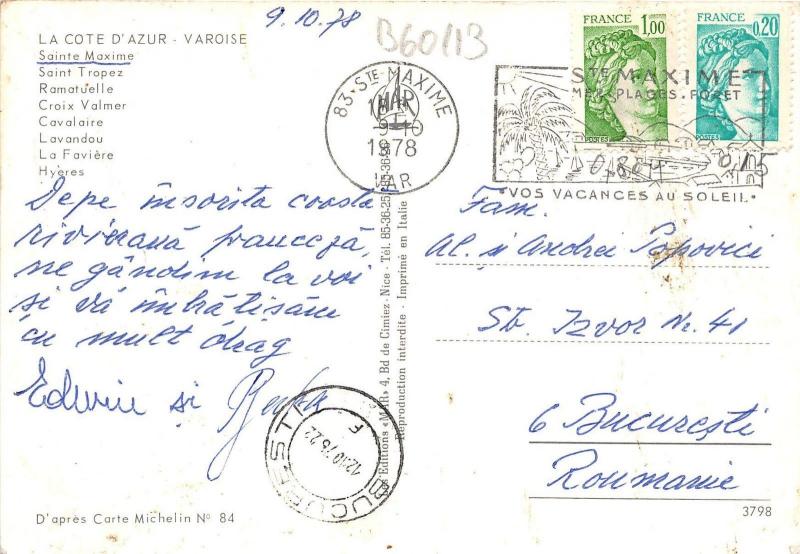 9.10.78
B60/13
LA COTE D'AZUR - VAROISE
Sainte Maxime
Saint Tropez
Ramatuelle
Croix Valmer
Cavalaire
Lavandou
La Favière
Hyères
Depe însorita coasta
rivierană franceză,
ne gândim la voi
și vă îmbrățisăm
cu mult drag
Edwin și
D'après Carte Michelin N° 84
83-STE-MAXIME
9-10
1978
VAR
FRANCE 1,00
POSTES
FRANCE 0,20
POSTES
STE MAXIME
MER.PLAGES.FORET
"VOS VACANCES AU SOLEIL"
Les Editions «MAR» 4, Bd de Cimiez - Nice - Tél. 85-36-25
Reproduction interdite - Imprimé en Italie
Fam.
Al. și Andrei Popovici
Str. Izvor Nr. 41
6 București
Roumanie
BUCURESTI
12.10.78-22
F
3798